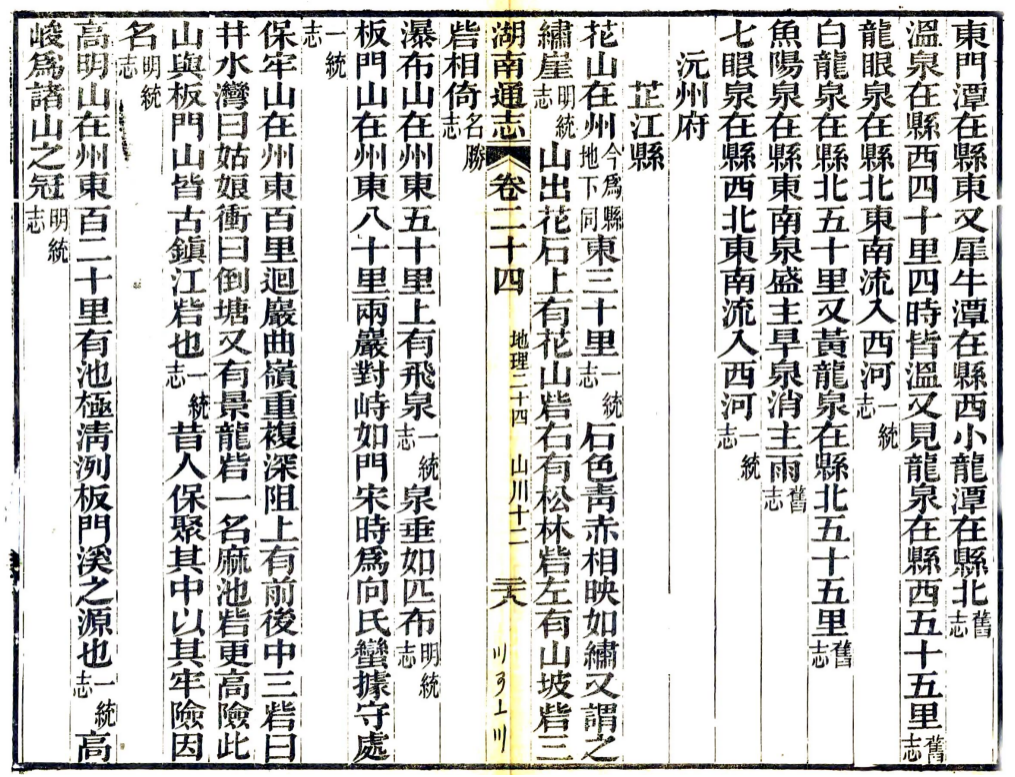 東門潭在縣東又犀牛潭在縣西小龍潭在縣北舊志
溫泉在縣西四十里四時皆溫又見龍泉在縣西五十五里舊志
龍眼泉在縣北東南流入西河一統志
白龍泉在縣北五十里又黃龍泉在縣北五十五里舊志
魚陽泉在縣東南泉盛主旱泉消主雨舊志
七眼泉在縣西北東南流入西河一統志
沅州府
芷江縣
花山在州今為縣地下同東三十里一統志石色靑赤相映如繡又謂之
繡崖明統志山出花石上有花山砦右有松林砦左有山坡砦三
湖南通志 卷二十四 地理二十四 山川十二
砦相倚名勝志
瀑布山在州東五十里上有飛泉一統志泉垂如匹布明統志
板門山在州東八十里兩巖對峙如門宋時爲向氏蠻據守處
一統志
保牢山在州東百里迴巖曲嶺重複深阻上有前後中三砦曰
井水灣曰姑娘衝曰倒塘又有景龍砦一名麻池砦更高險此
山與板門山皆古鎭江砦也一統志昔人保聚其中以其牢險因
名明統志
高明山在州東百二十里有池極淸洌板門溪之源也一統志高
峻爲諸山之冠明統志